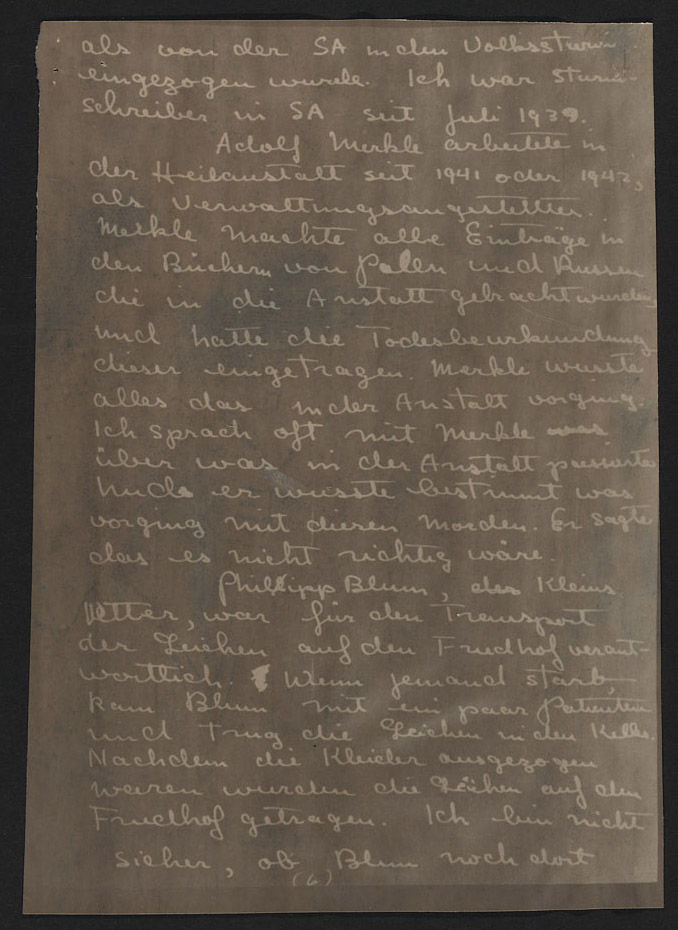 als von der SA in den Volkssturm
eingezogen wurde. Ich war Sturm-
schreiber in SA seit Juli 1939.
Adolf Merkle arbeitete in
der Heilanstalt seit 1941 oder 1942,
als Verwaltungsangestellter.
Merkle machte alle Einträge in
den Büchern von Polen und Russen
die in die Anstalt gebracht wurden
und hatte die Todesbeurkundung
dieser eingetragen. Merkle wusste
alles das in der Anstalt vorging.
Ich sprach oft mit Merkle was
über was in der Anstalt passierte
und er wusste bestimmt was
vorging mit diesen Morden. Er sagte
das es nicht richtig wäre.
Phillipp Blum, des Kleins
Vetter, war für den Transport
der Leichen auf den Friedhof verant-
wortlich. Wenn jemand starb,
kam Blum mit ein paar Patienten
und trug die Leichen in den Keller.
Nachdem die Kleider ausgezogen
waren wurden die Leichen auf den
Friedhof getragen. Ich bin nicht
sicher, ob Blum noch dort
(6)